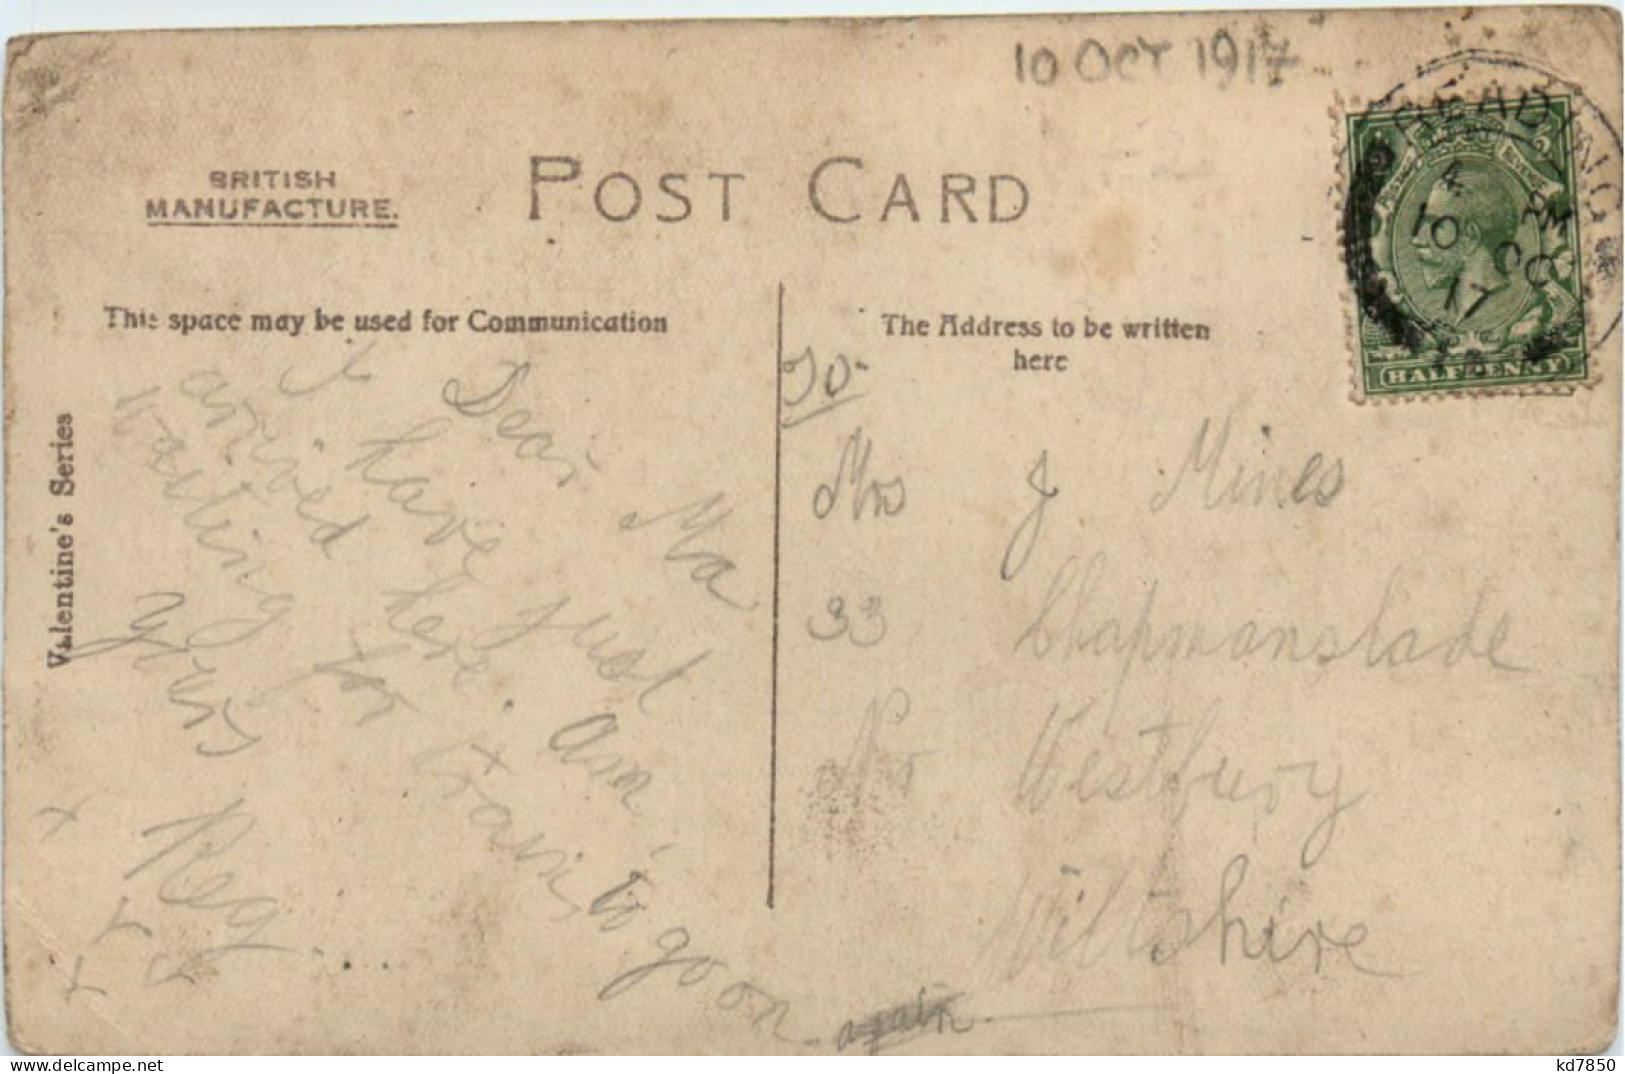 10 OCT 1917
BRITISH
MANUFACTURE.
POST CARD
READING
4 PM
10 OC
17
HALFPENNY
This space may be used for Communication
The Address to be written
here
Valentine's Series
Dear Ma
I have just
arrived here. am
waiting for train to go on again
yours
Reg....
x
To-
Mrs J Mines
33 Chapmanslade
Nr Westbury
Wiltshire
delcampe.net
kd7850